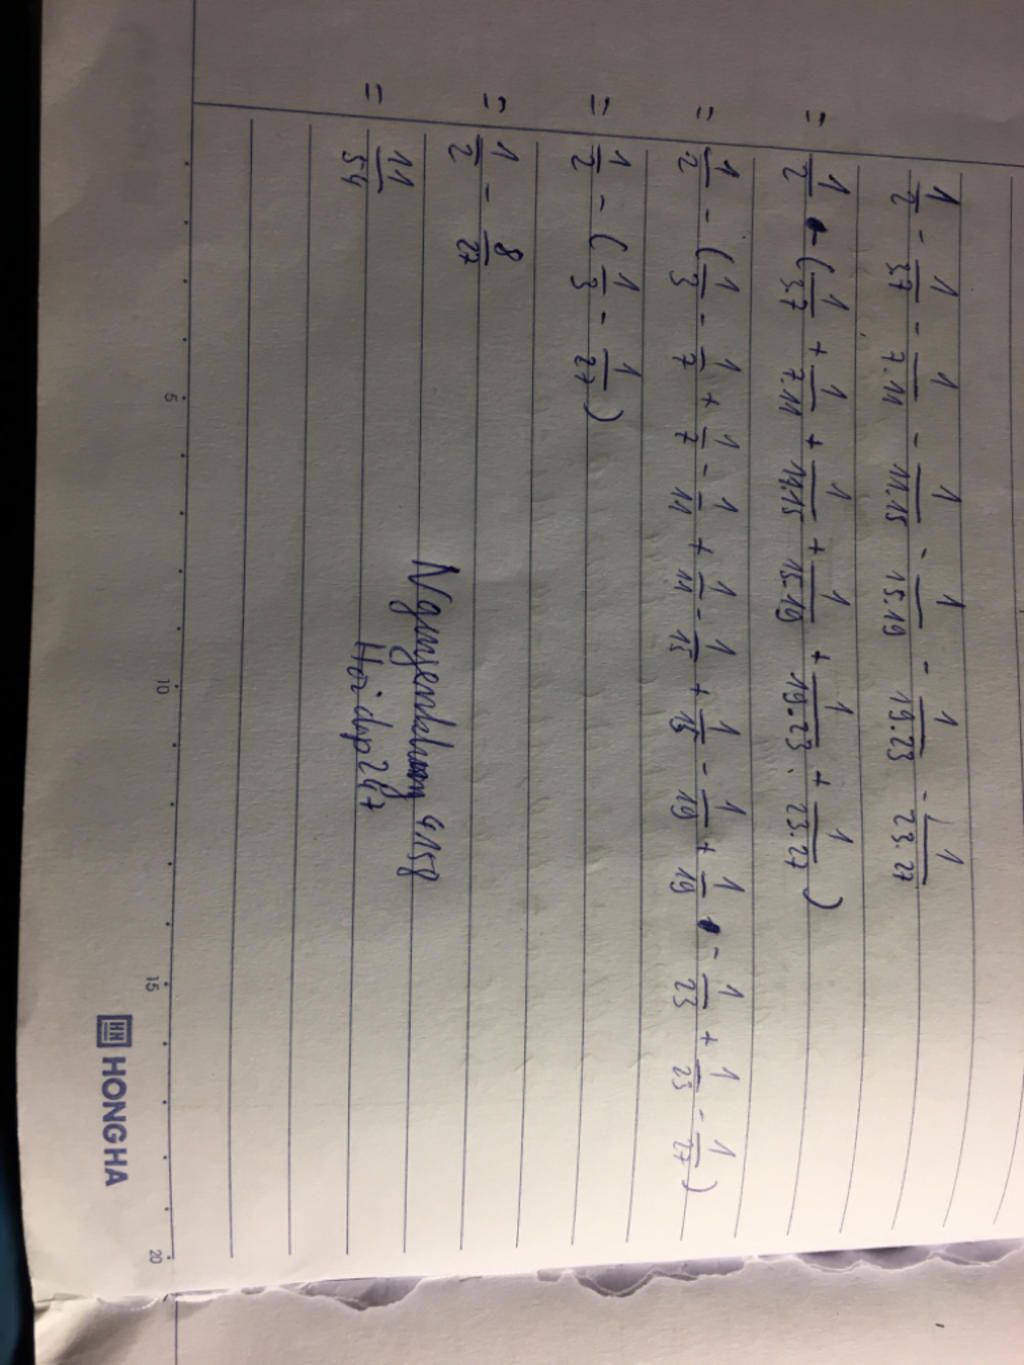 1/2 - 1/3.7 - 1/7.11 - 1/11.15 - 1/15.19 - 1/19.23 - 1/23.27
= 1/2 - (1/3.7 + 1/7.11 + 1/11.15 + 1/15.19 + 1/19.23 + 1/23.27)
= 1/2 - (1/3 - 1/7 + 1/7 - 1/11 + 1/11 - 1/15 + 1/15 - 1/19 + 1/19 - 1/23 + 1/23 - 1/27)
= 1/2 - (1/3 - 1/27)
= 1/2 - 8/27
= 11/54
Hoidap247
5 10 15 20
HH HONGHA